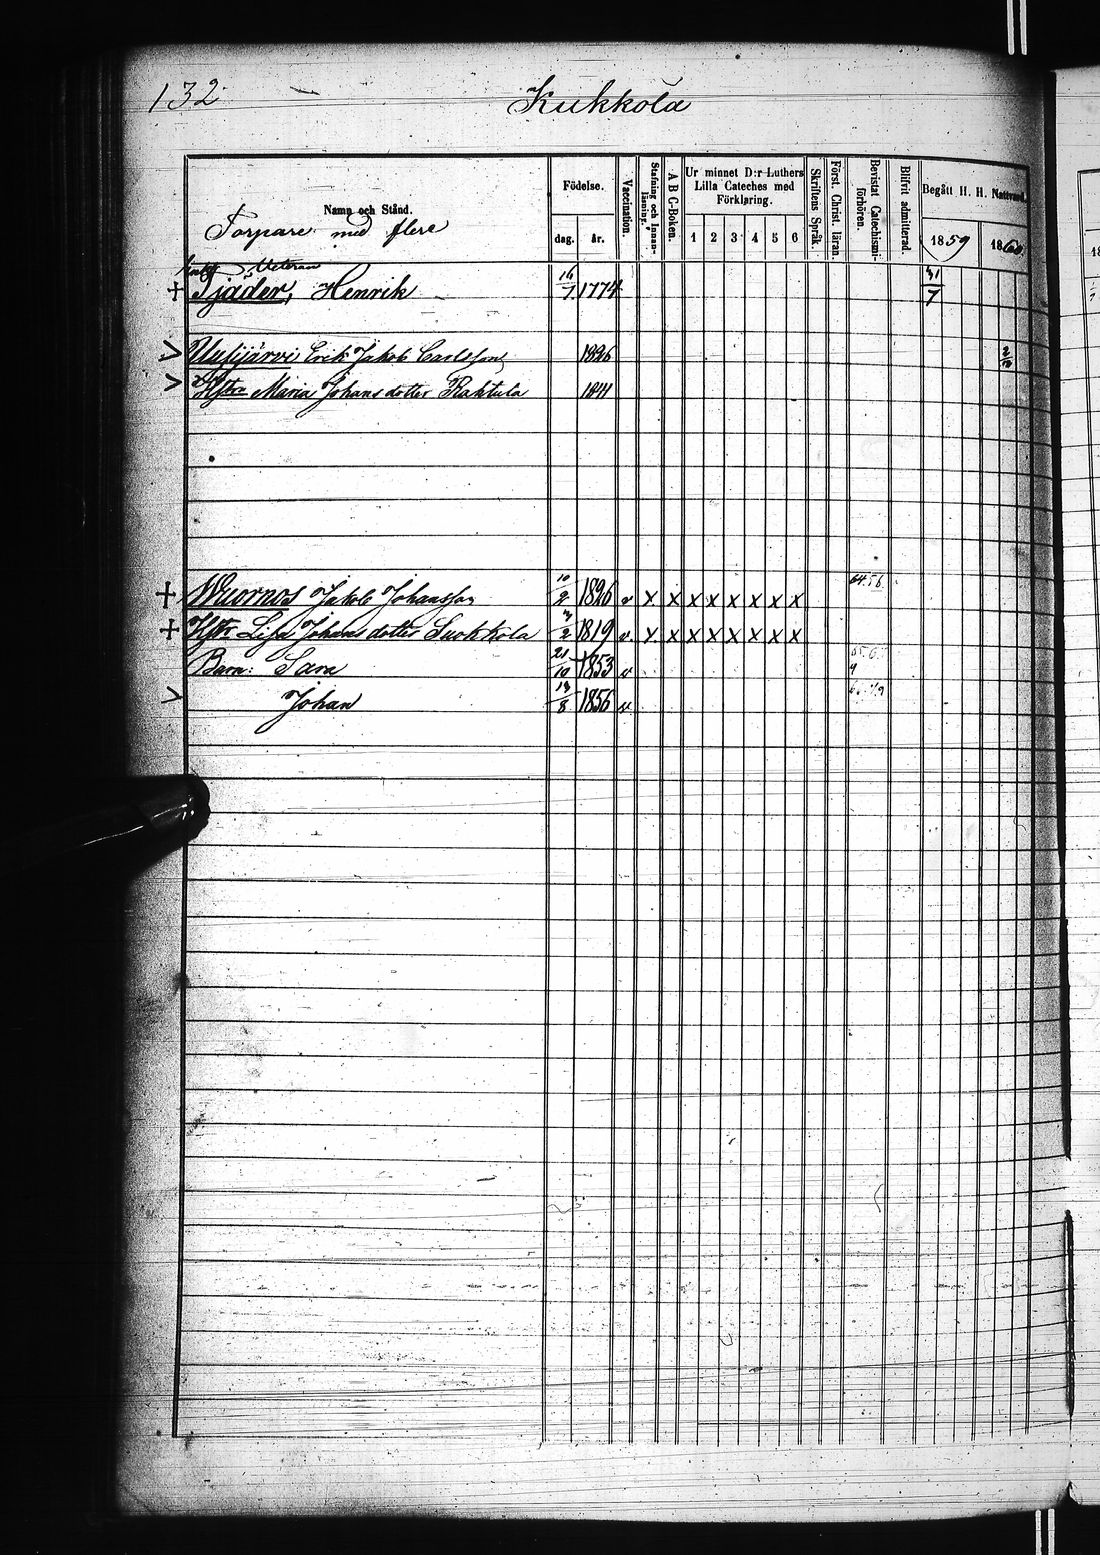 132
Kukkola
Namn och Stånd.
Torpare med flere
Födelse.
dag. år.
Vaccination.
Stafning och Innanläsning.
A B C-Boken.
Ur minnet D:r Luthers Lilla Cateches med Förklaring.
1 2 3 4 5 6
Skriftens Språk.
Först. Christ. läran.
Bevistat Catechismiförhören.
Blifvit admitterad.
Begått H. H. Nattvard.
1859 1860
Veteran
+ Tjäder, Henrik 16/7 1774 31/7
V Erik Jakob Carlsson 1826
V Hstru Maria Johansdotter Raktula 1841
+ Wuornos Jakob Johansson 10/2 1826 v x x x x x x x x
+ Hstr Lisa Johansdotter Suokkola 3/2 1819 v x x x x x x x x
Barn: Sara 21/10 1853 v
V Johan 13/8 1856 v